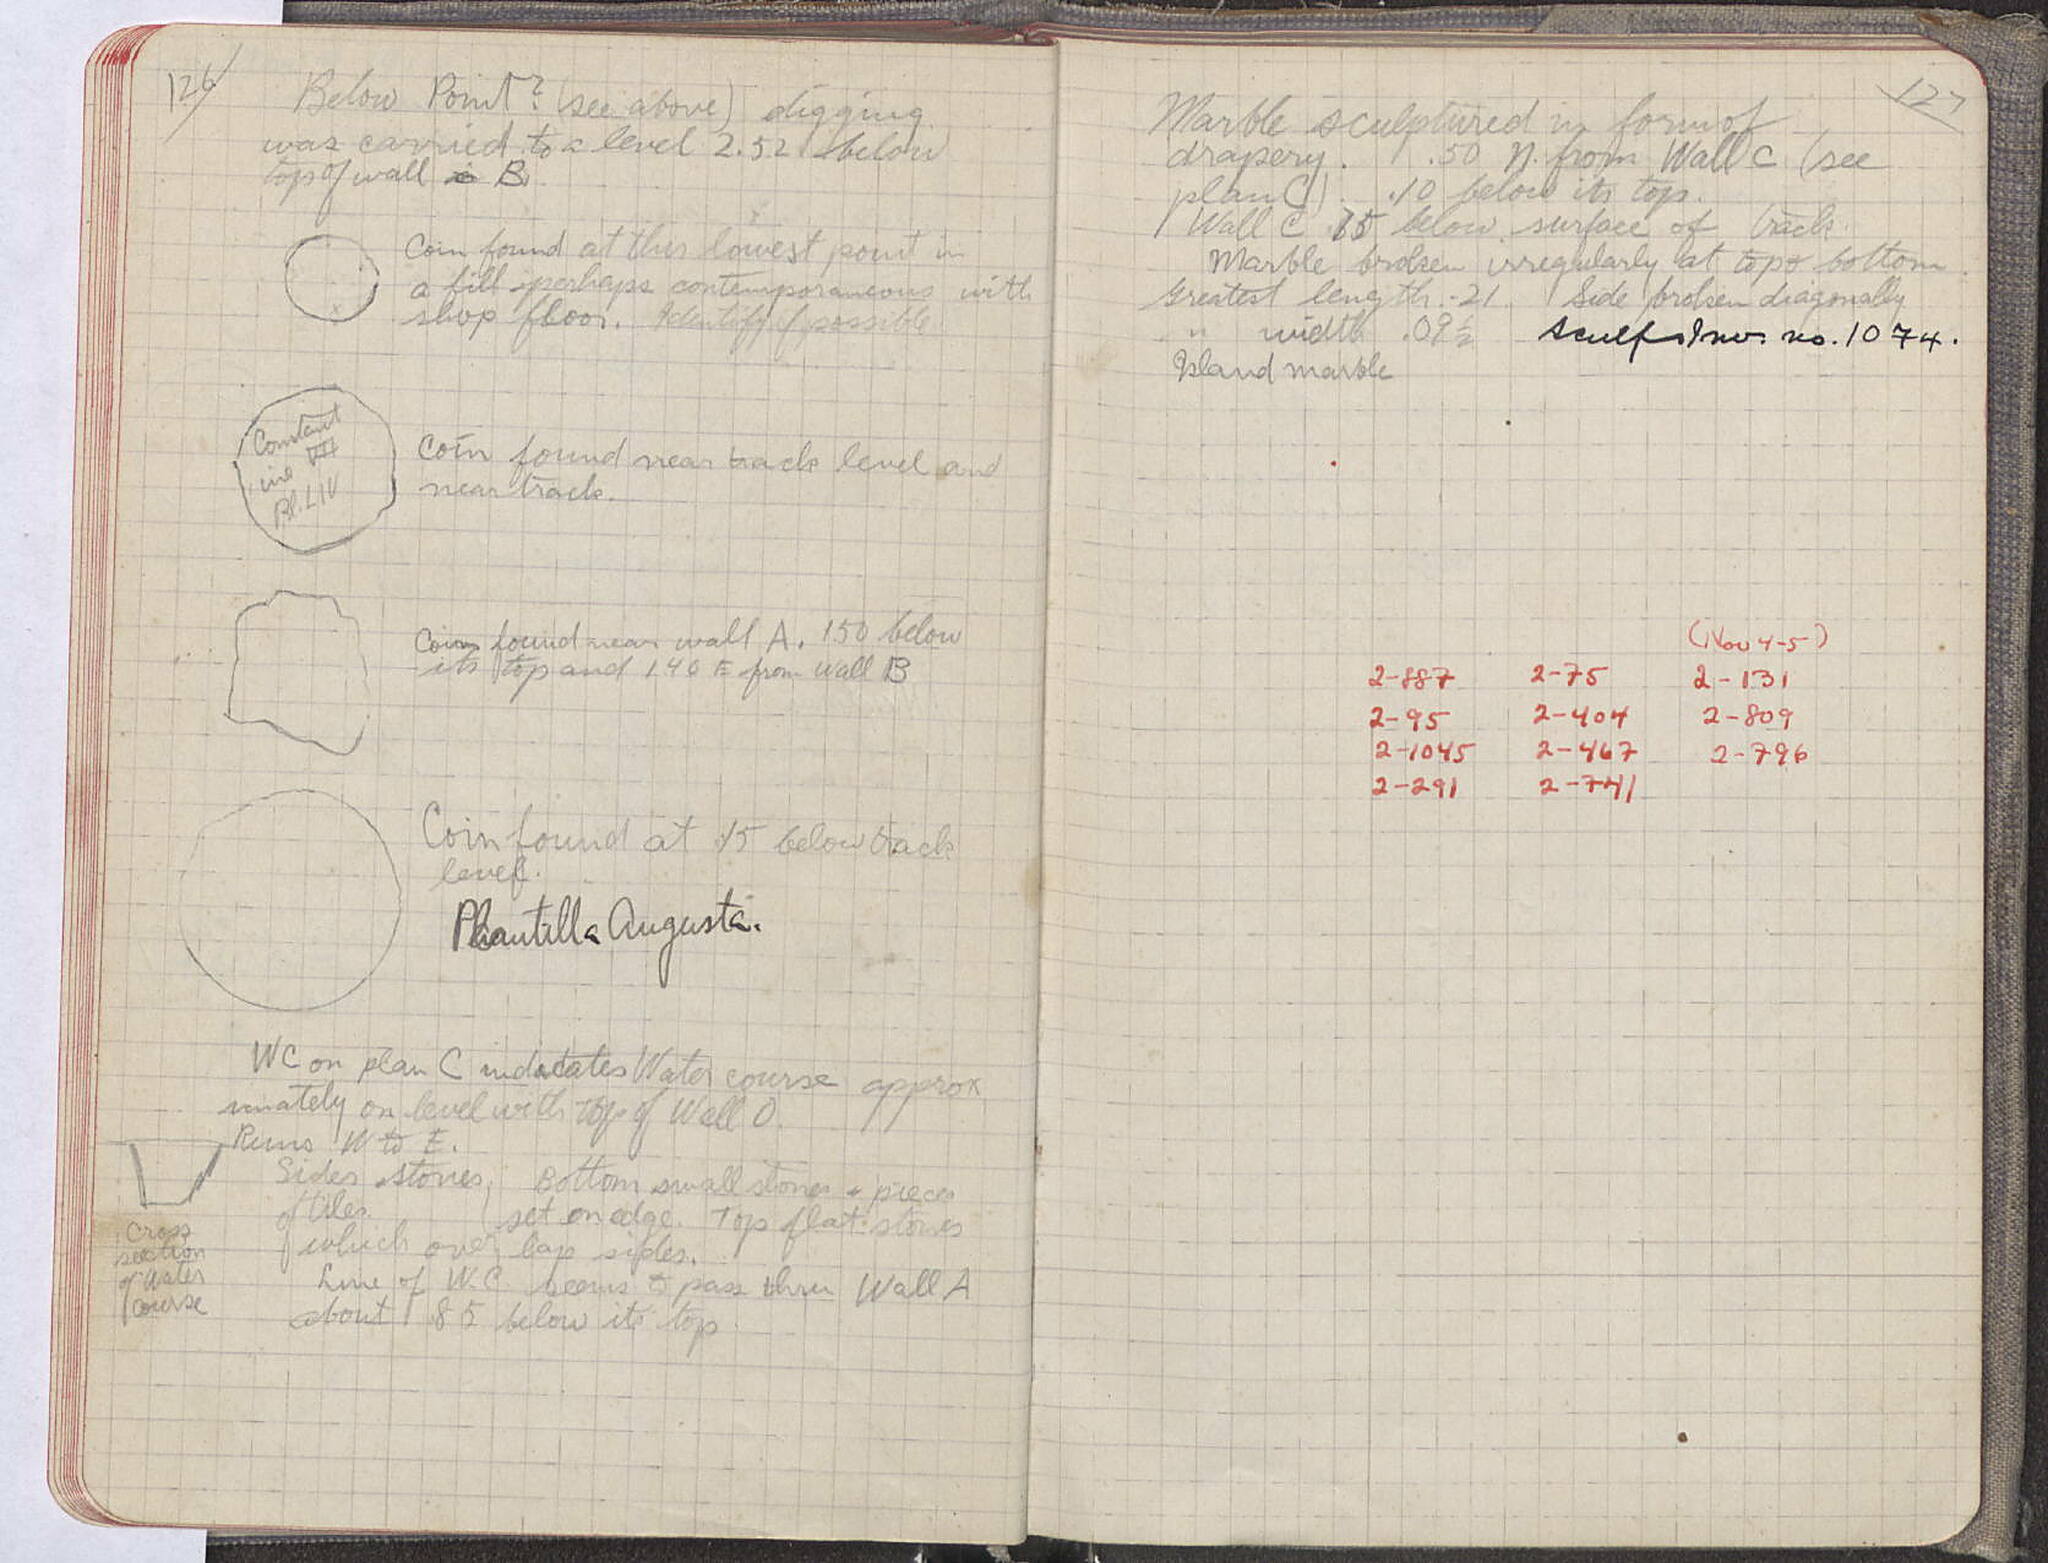 126
Below Point? (see above) digging
was carried to a level 2.52 below
top of wall B.
Coin found at this lowest point in
a fill perhaps contemporaneous with
shop floor. Identify if possible
Constant
ine VII
Pl. LIV
Coin found near track level and
near track.
Coin found near wall A. 150 below
its top and 140 E from wall B
Coin found at .15 below track
level.
Plautilla Augusta.
WC on plan C indicates Water course approx
imately on level with top of Wall O.
Runs W to E.
Sides stones, Bottom small stones + pieces
of tiles set on edge. Top flat stones
which over lap sides.
Line of W.C. seems to pass thru Wall A
about .85 below its top.
Cross
section
of Water
course
127
Marble sculptured in form of
drapery. .50 N. from Wall C (see
plan C) .10 below its top.
Wall C .75 below surface of track.
Marble broken irregularly at top & bottom.
Greatest length .21 Side broken diagonally
" width .09½ Sculp. Inv. no. 1074.
Island marble
(Nov 4-5)
2-887 2-75 2-131
2-95 2-404 2-809
2-1045 2-467 2-796
2-291 2-741